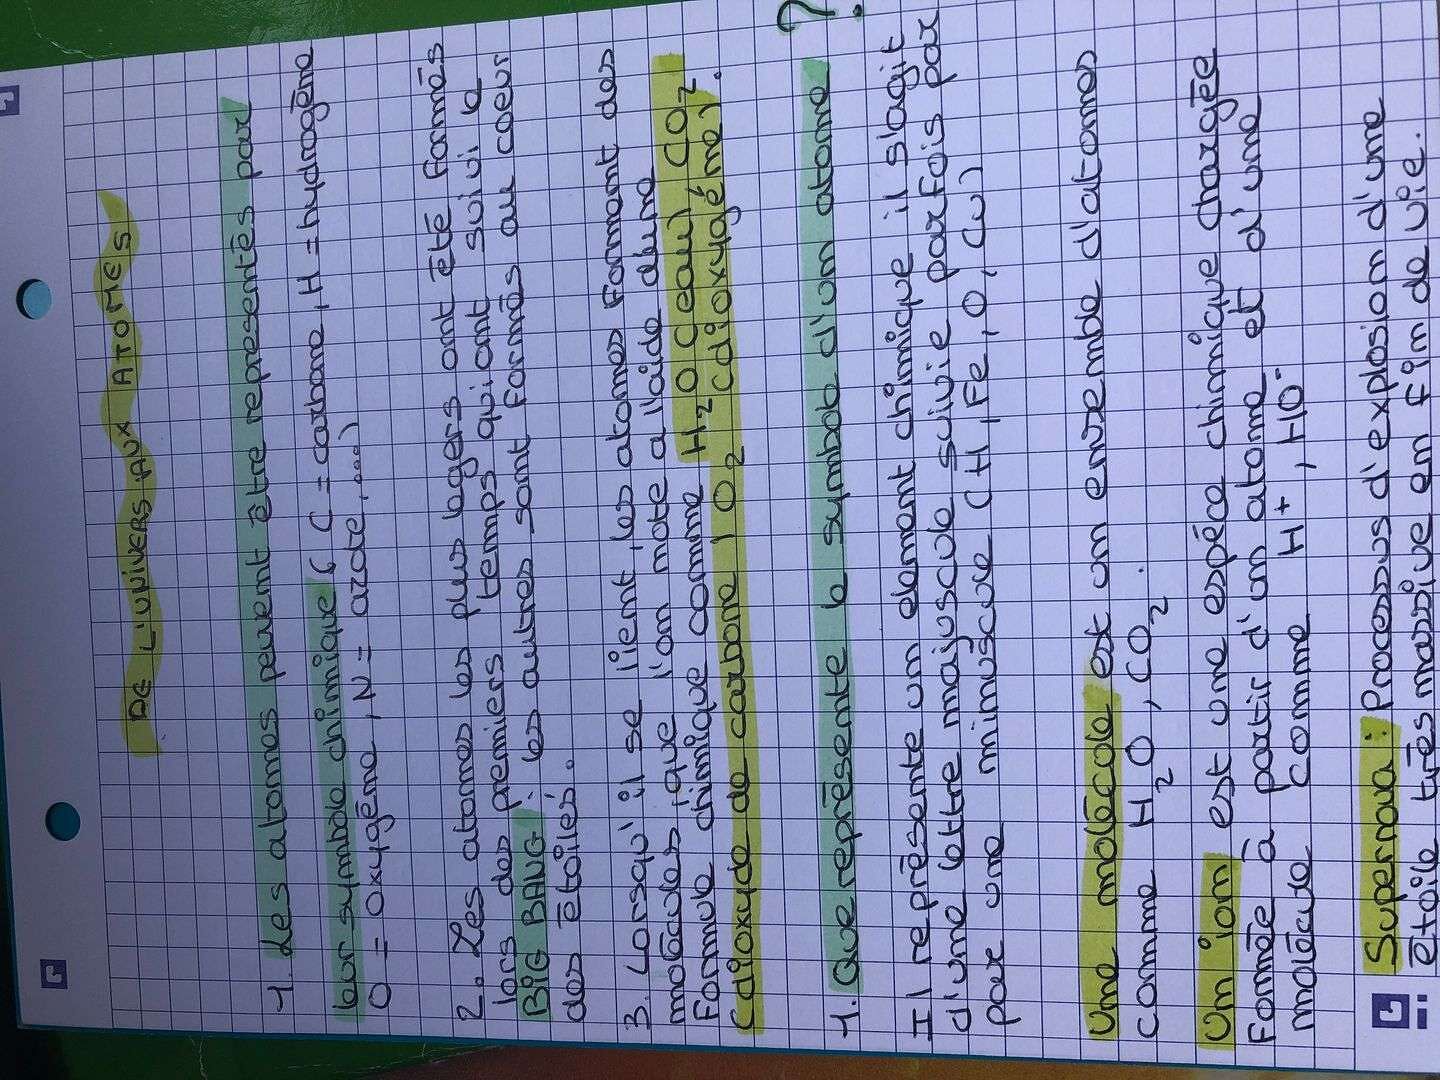 DE L'UNIVERS AUX ATOMES
1. Les atomes peuvent être representés par
leur symbole chimique ( C = carbone, H = hydrogène
O = oxygéne, N = azote, ...)
2. Les atomes les plus legers ont été formés
lors des premiers temps qui ont suivi le
BIG BANG : les autres sont formés au coeur
des étoiles.
3. Lorsqu'il se lient, les atomes forment des
molécules, que l'on note a l'aide d'une
Formule chimique comme H2O (eau), CO2
(dioxyde de carbone, O2 (dioxygéne).
1. Que représente le symbole d'un atome ?
Il représente un element chimique il s'agit
d'une lettre majuscule suivie parfois par
par une minuscule (H, Fe, O, Cu)
Une molécule est un ensemble d'atomes
comme H2O, CO2.
Un ion est une espéce chimique chargée
Formée à partir d'un atome et d'une
molécule comme H+, HO-
Supernova : Processus d'explosion d'une
étoile très massive en fin de vie.